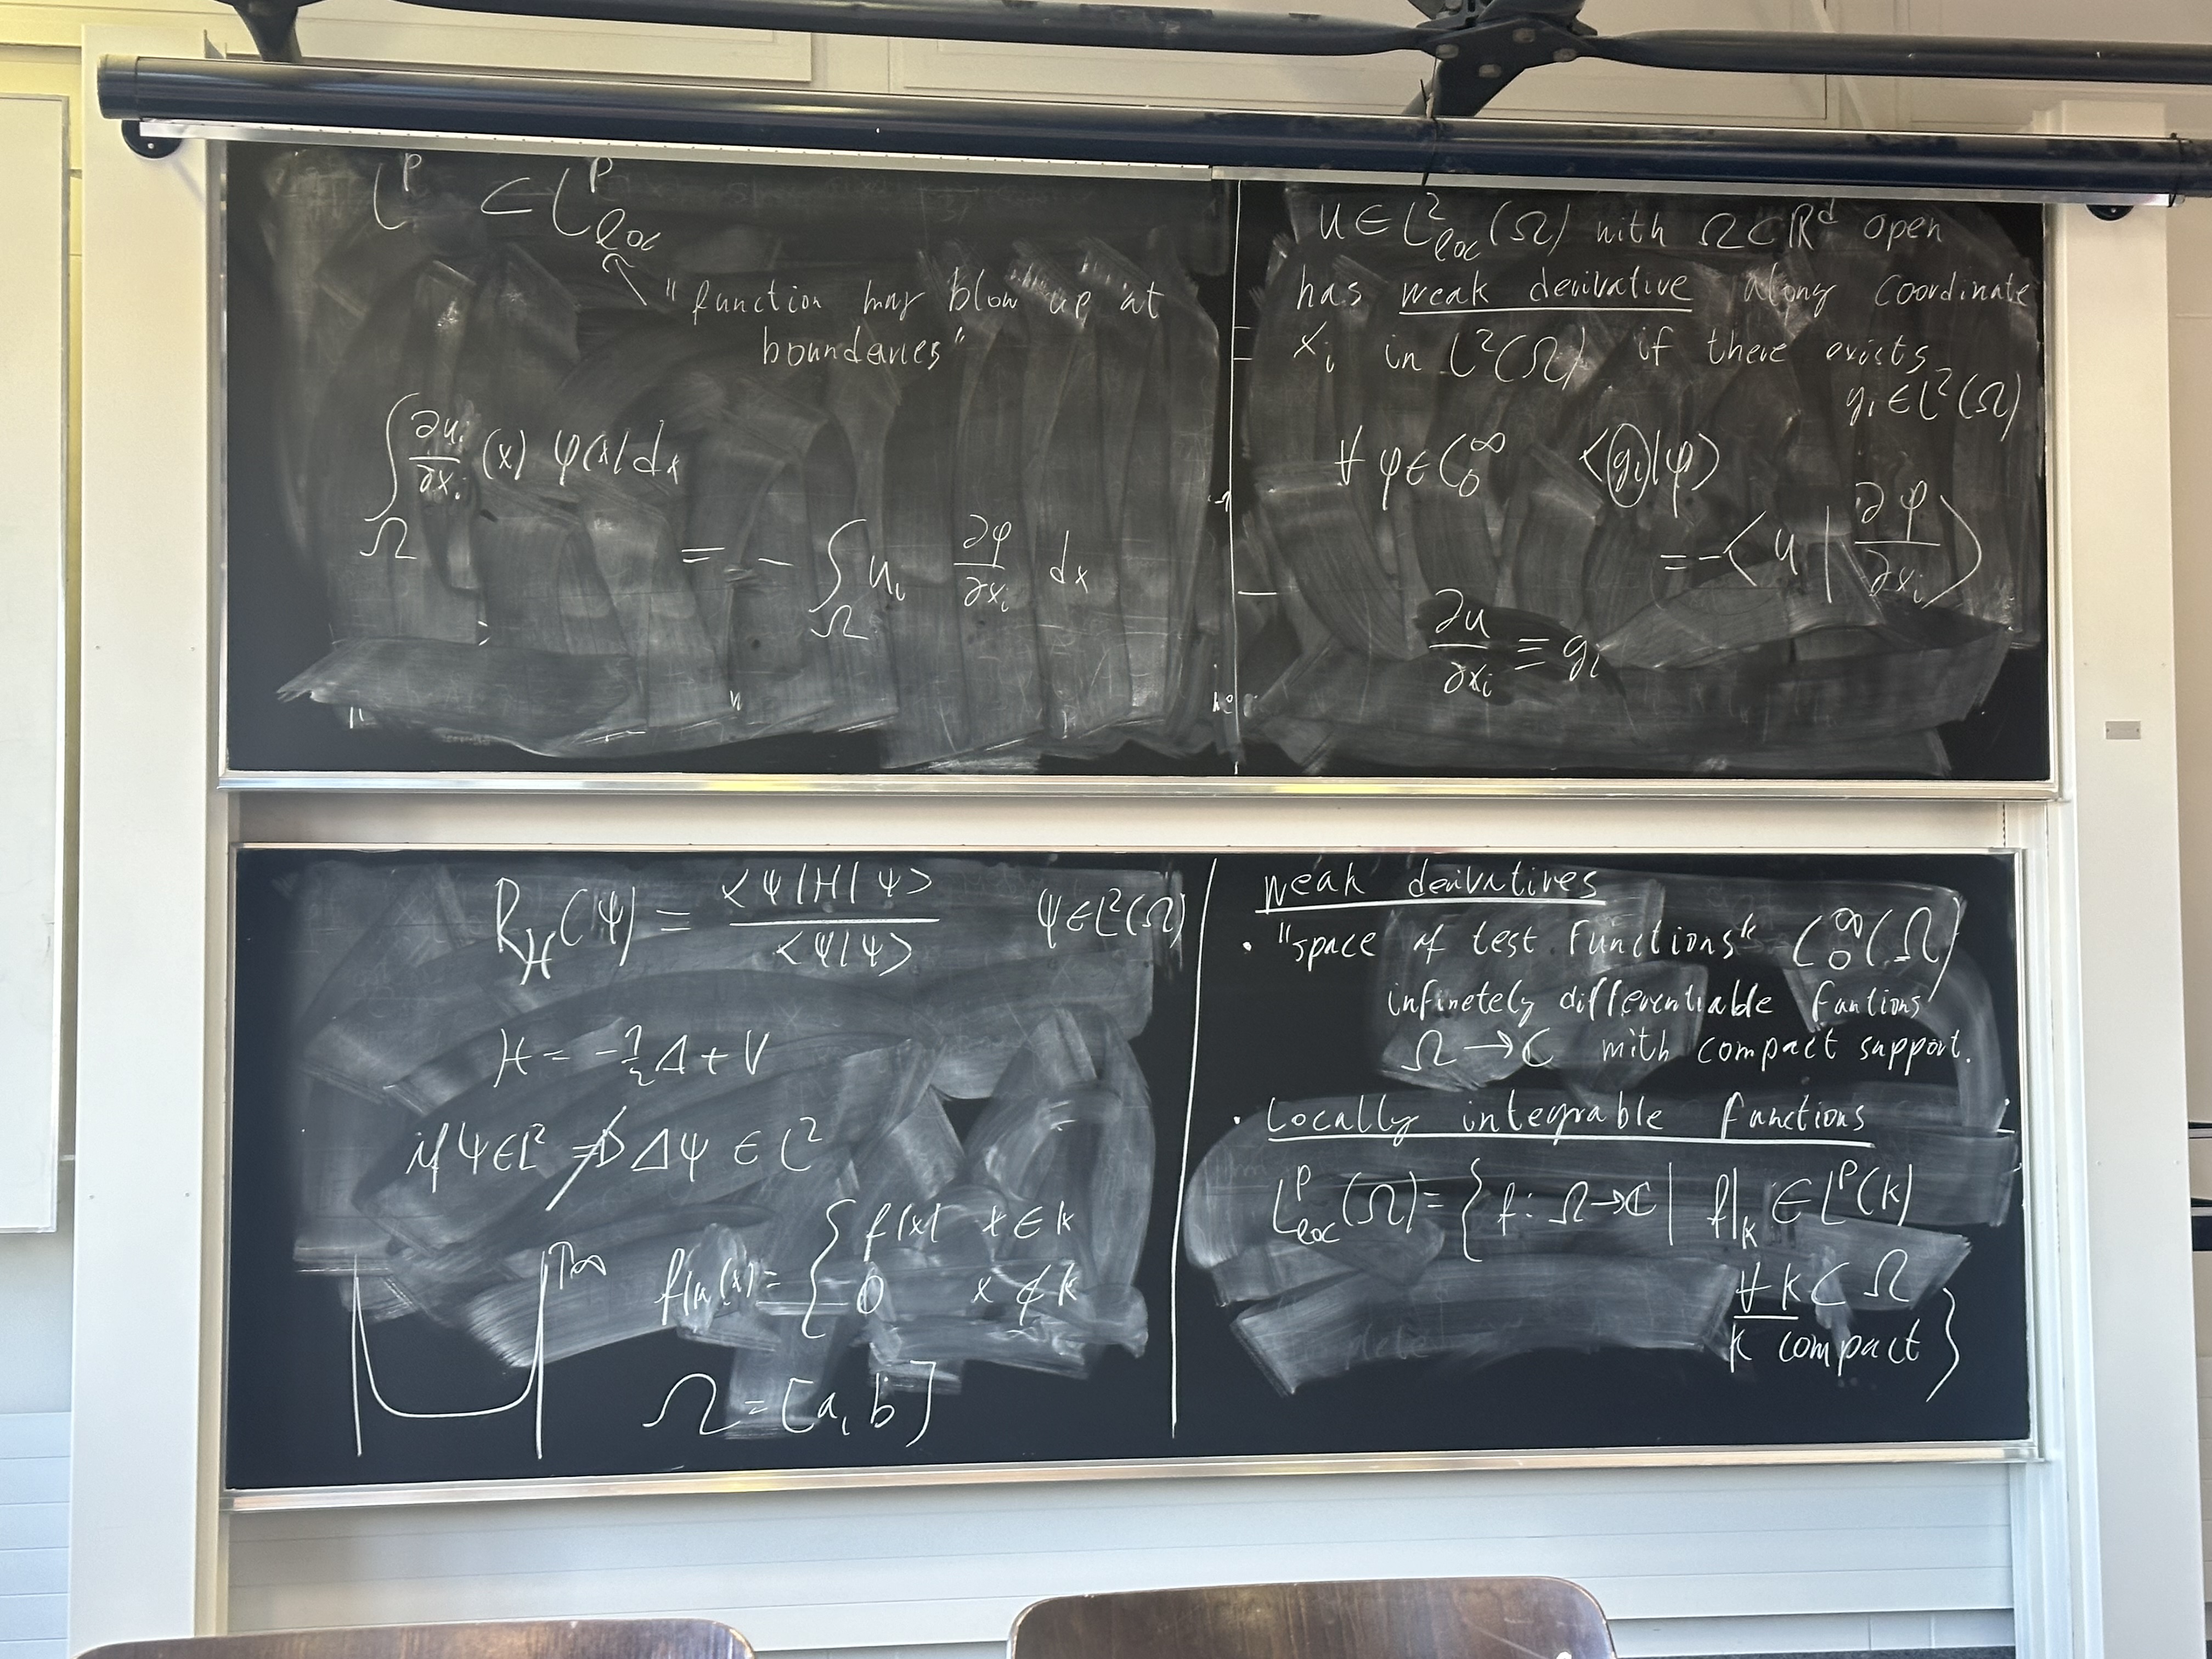 L^p ⊂ L^p_loc
"function may blow up at
boundaries"
∫_Ω ∂u_i/∂x_i (x) φ(x) dx
= - ∫_Ω u_i ∂φ/∂x_i dx
u ∈ L²_loc(Ω) with Ω ⊂ ℝ^d open
has weak derivative along coordinate
x_i in L²(Ω) if there exists
g_i ∈ L²(Ω)
∀ φ ∈ C_0^∞ <g_i|φ>
= -<u | ∂φ/∂x_i>
∂u/∂x_i ≡ g_i
R_H(ψ) = <ψ|H|ψ> / <ψ|ψ> ψ ∈ L²(Ω)
H = -½Δ + V
if ψ ∈ L² ⇏ Δψ ∈ L²
f|_K(x) = { f(x) x ∈ K
0 x ∉ K
↑∞
Ω = [a, b]
weak derivatives
· "space of test functions" C_0^∞(Ω)
infinetely differentiable funtions
Ω → ℂ with compact support.
· Locally integrable functions
L^p_loc(Ω) = { f: Ω → ℂ | f|_K ∈ L^p(K)
∀ K ⊂ Ω
K compact }